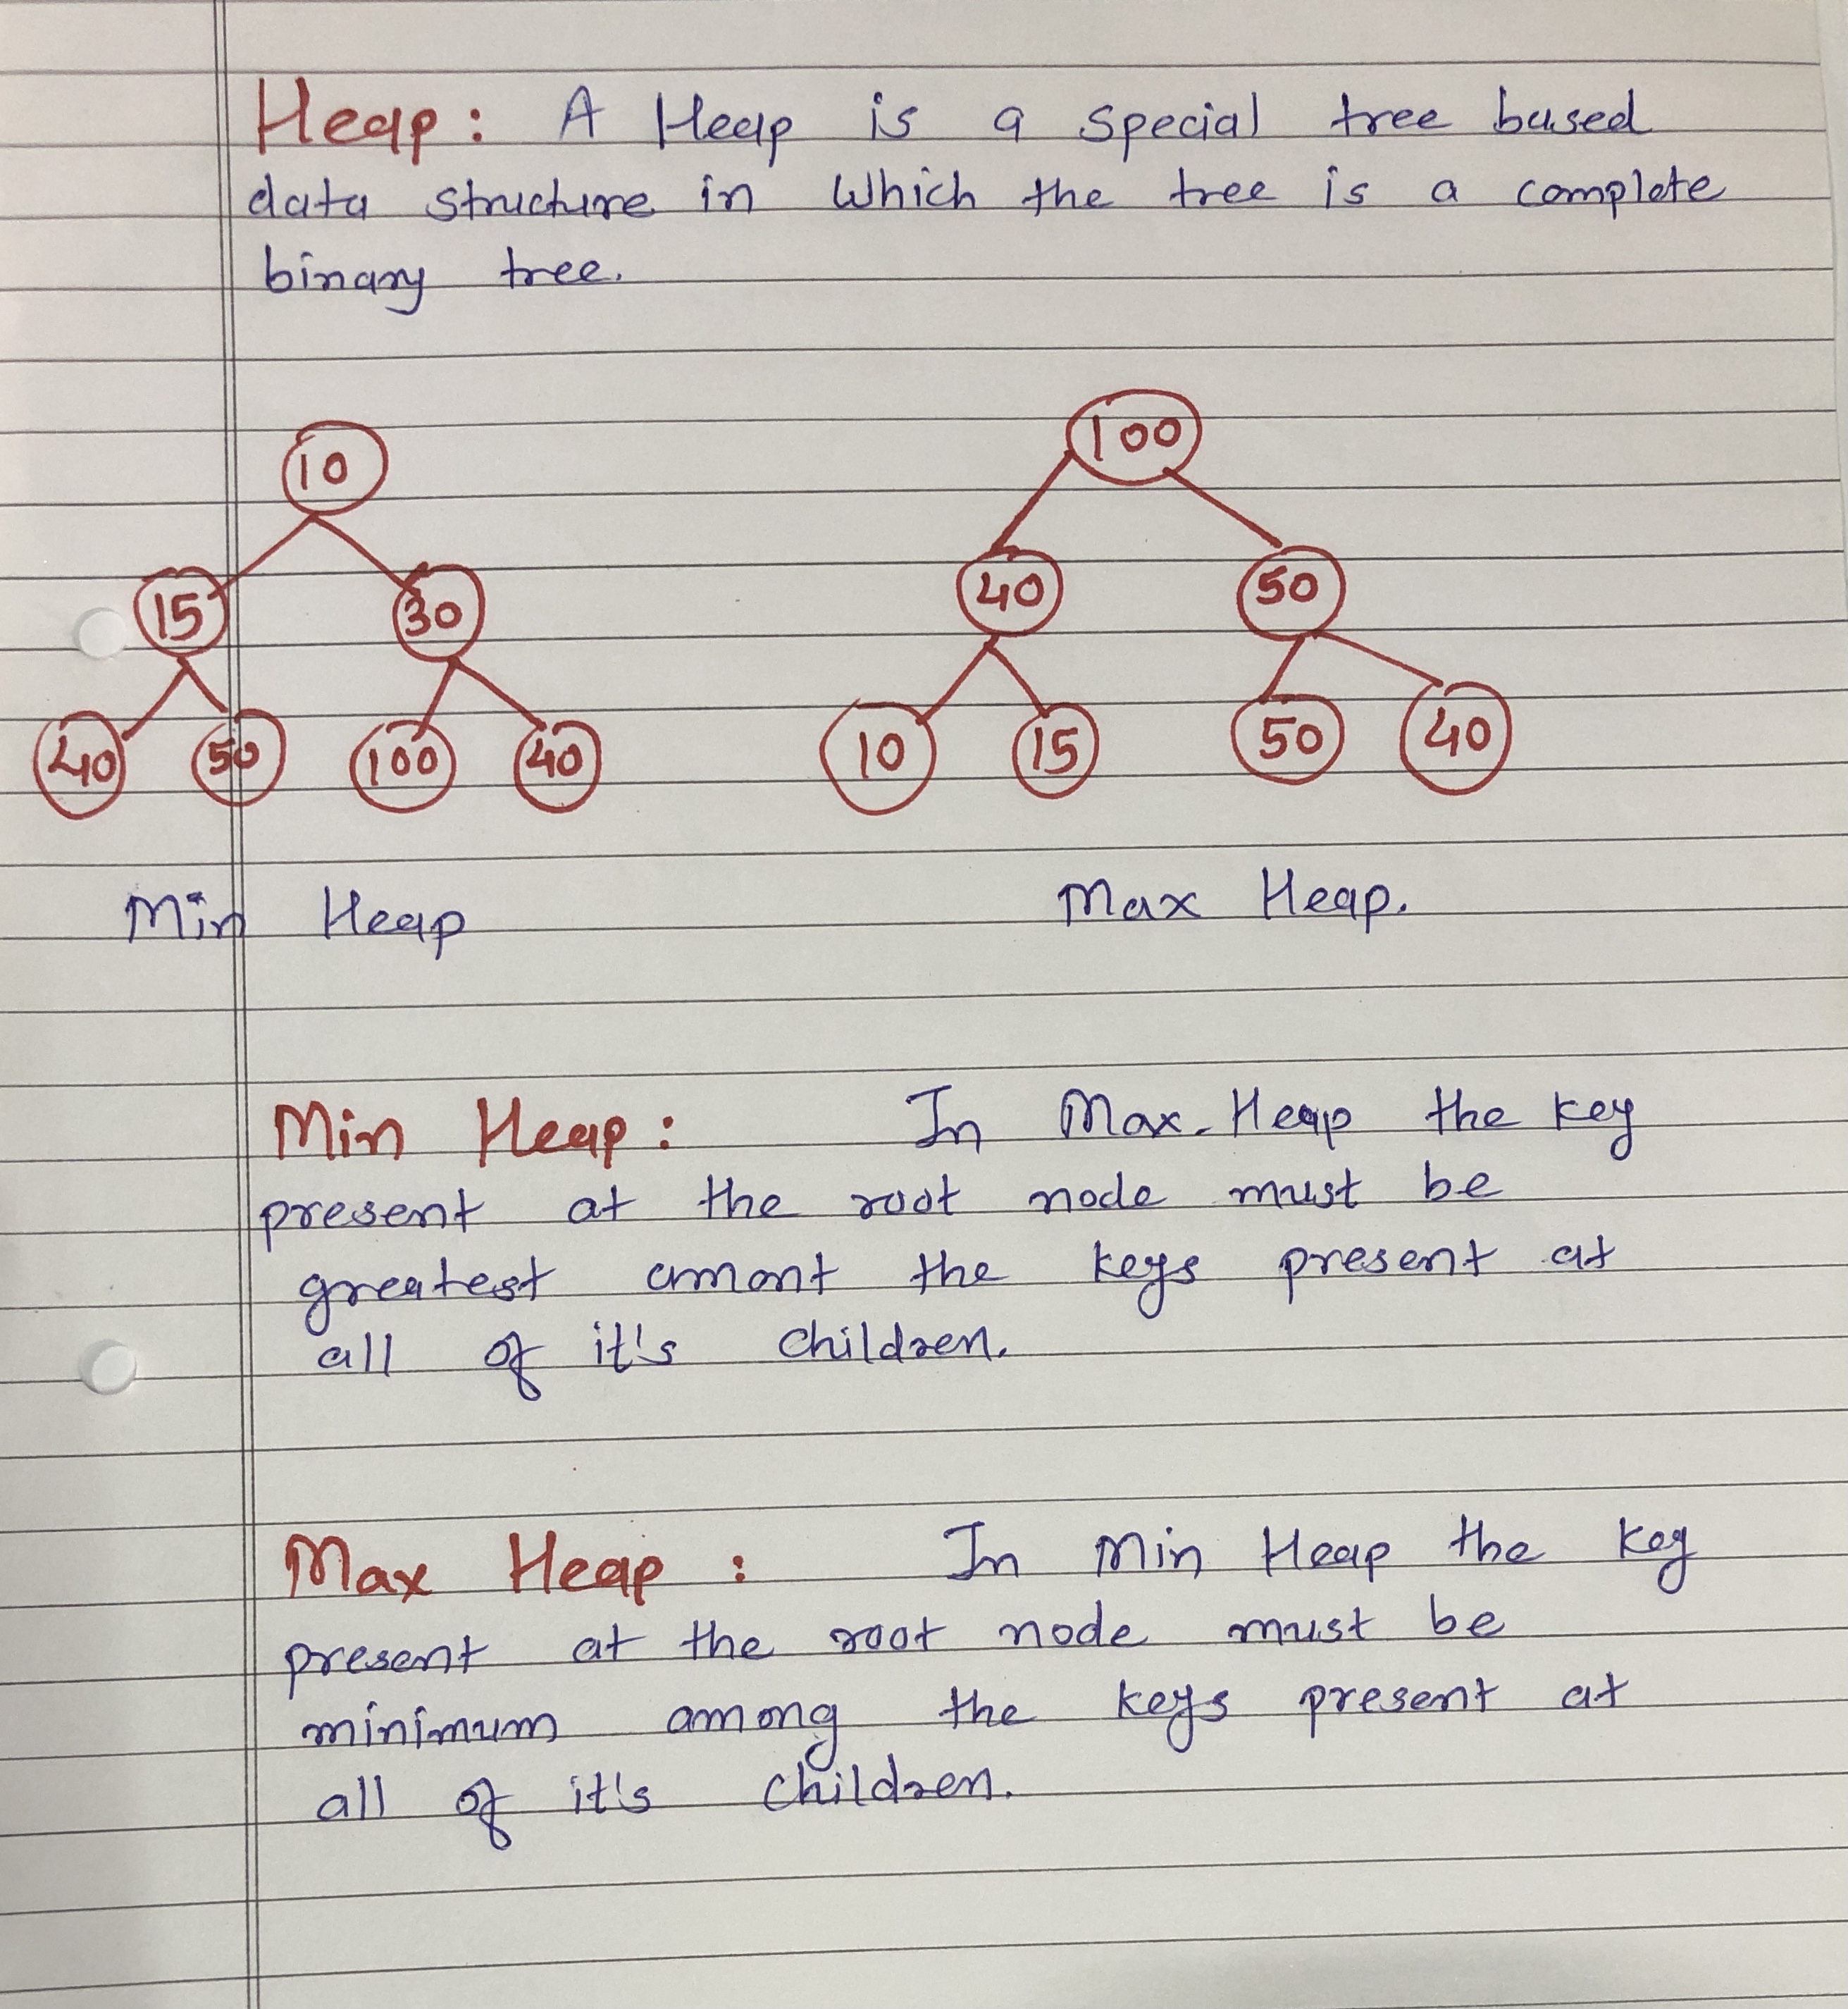 Heap: A Heap is a special tree based
data structure in which the tree is a complete
binary tree.
10 100
15 30 40 50
40 50 100 40 10 15 50 40
Min Heap Max Heap.
Min Heap: In Max-Heap the key
present at the root node must be
greatest amont the keys present at
all of it's children.
Max Heap : In Min Heap the key
present at the root node must be
minimum among the keys present at
all of it's children.